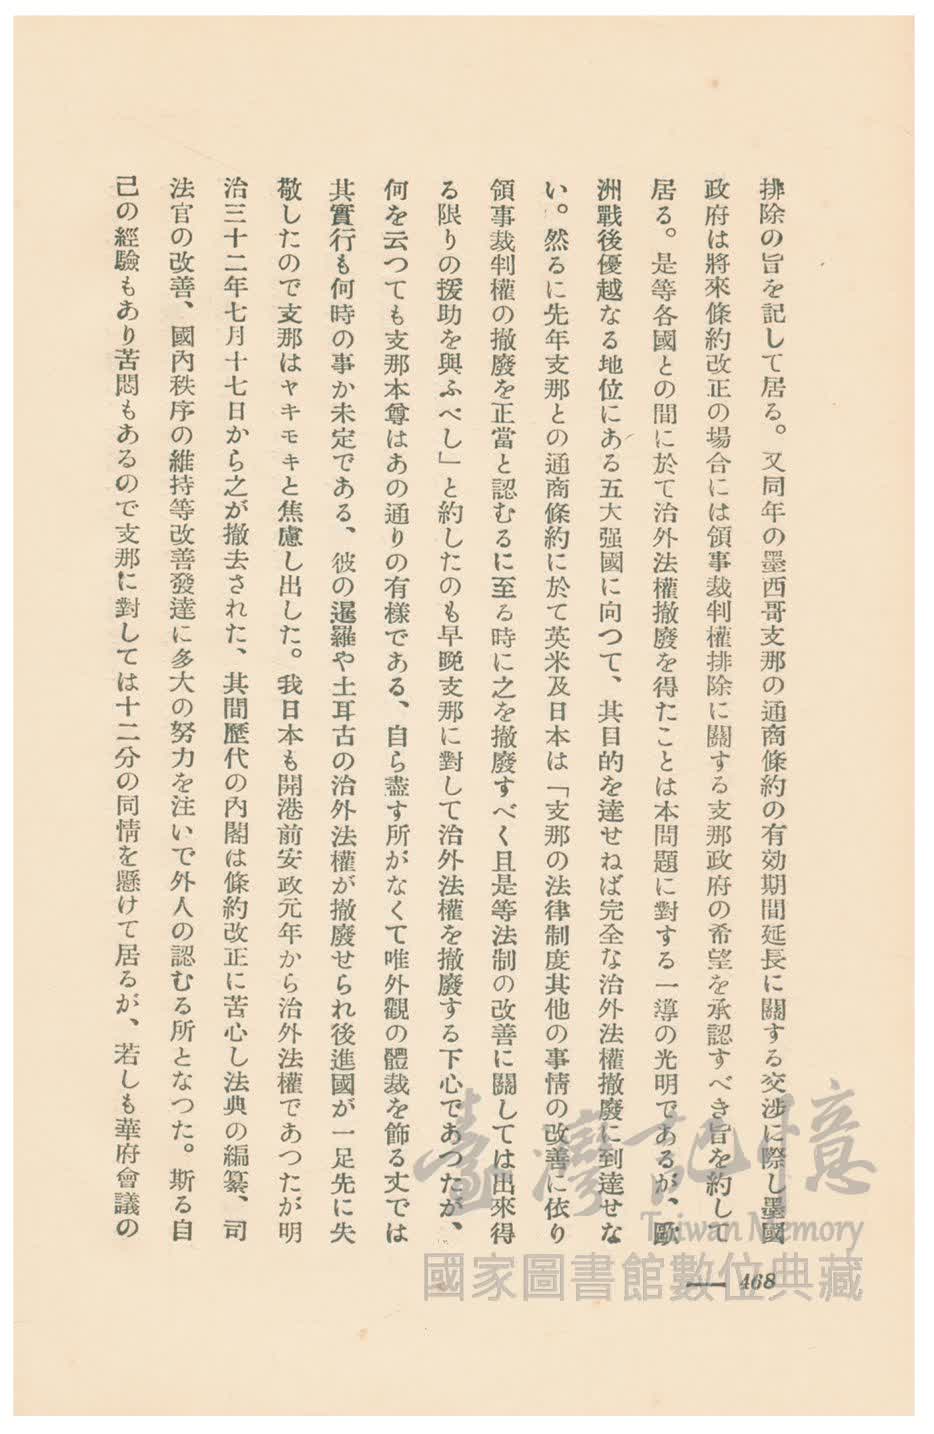 排除の旨を記して居る。又同年の墨西哥支那の通商條約の有効期間延長に關する交渉に際し墨國
政府は將來條約改正の場合には領事裁判權排除に關する支那政府の希望を承認すべき旨を約して
居る。是等各國との間に於て治外法權撤廢を得たことは本問題に對する一導の光明であるが、歐
洲戰後優越なる地位にある五大强國に向つて、其目的を達せねば完全な治外法權撤廢に到達せな
い。然るに先年支那との通商條約に於て英米及日本は「支那の法律制度其他の事情の改善に依り
領事裁判權の撤廢を正當と認むるに至る時に之を撤廢すべく且是等法制の改善に關しては出來得
る限りの援助を與ふべし」と約したのも早晩支那に對して治外法權を撤廢する下心であつたが、
何を云つても支那本尊はあの通りの有樣である、自ら盡す所がなくて唯外觀の體裁を飾る丈では
其實行も何時の事か未定である、彼の暹羅や土耳古の治外法權が撤廢せられ後進國が一足先に失
敬したので支那はヤキモキと焦慮し出した。我日本も開港前安政元年から治外法權であつたが明
治三十二年七月十七日から之が撤去された、其間歷代の內閣は條約改正に苦心し法典の編纂、司
法官の改善、國內秩序の維持等改善發達に多大の努力を注いで外人の認むる所となつた。斯る自
己の經驗もあり苦悶もあるので支那に對しては十二分の同情を懸けて居るが、若しも華府會議の
— 468
臺灣記憶
Taiwan Memory
國家圖書館數位典藏